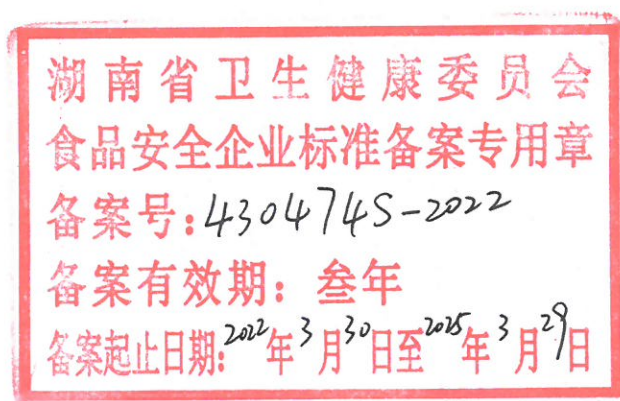 湖南省卫生健康委员会
食品安全企业标准备案专用章
备案号:430474S-2022
备案有效期：叁年
备案起止日期:2022年3月30日至2025年3月29日